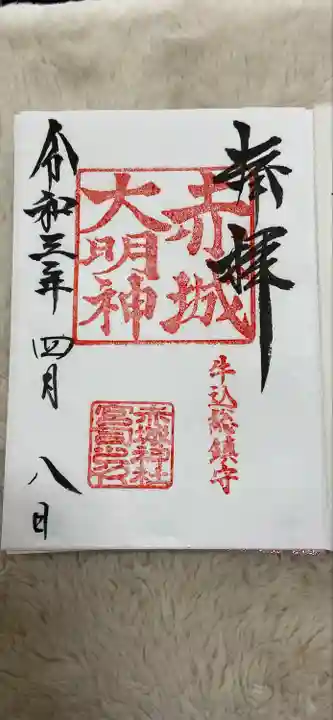 奉拝
赤城
大明神
牛込総鎮守
赤城神社
宮司之印
令和三年 四月 八日